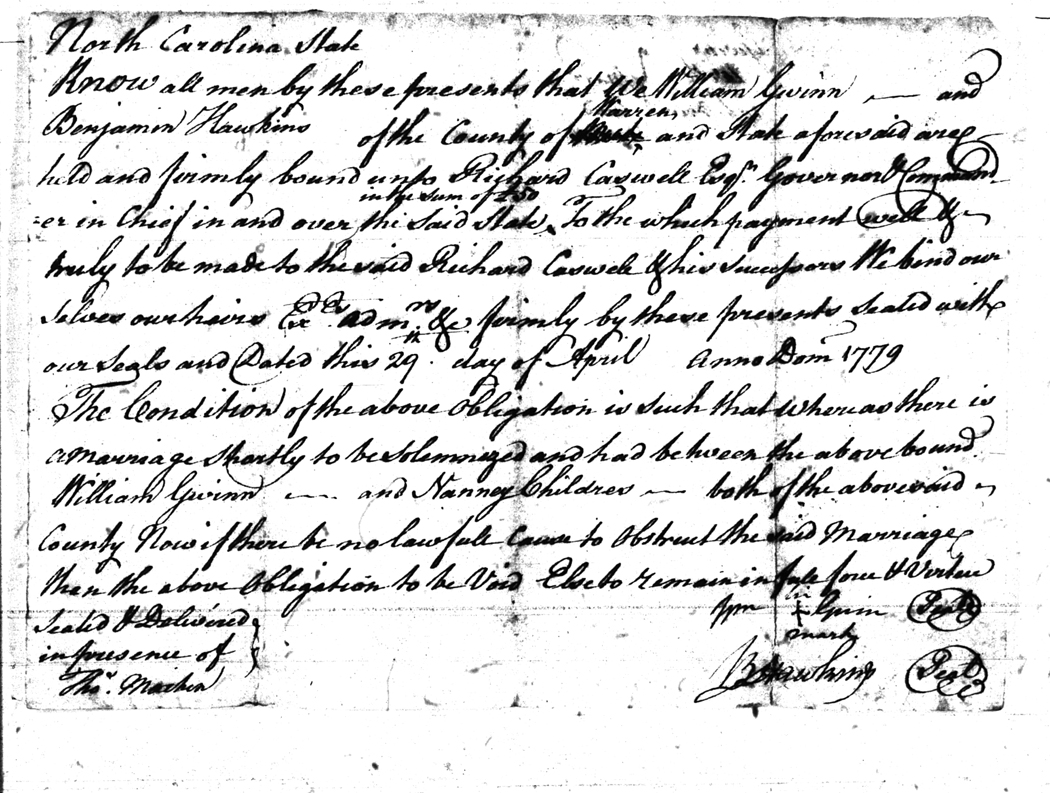 North Carolina State
Know all men by these presents that We William Gwinn — and
Benjamin Hawkins of the County of Warren and State aforesaid are
held and firmly bound unto Richard Caswell Esqr. Governor & Command-
in the sum of £50
=er in Chief in and over the said State, To the which payment well &
truly to be made to the said Richard Caswell & his successors We bind our
selves our heirs Exrs. Admrs. &c firmly by these presents sealed with
our Seals and Dated this 29th day of April Anno Dom 1779
The Condition of the above Obligation is such that whereas there is
a marriage shortly to be solemnized and had between the above bound
William Gwinn — and Nanney Childres — both of the abovesaid
County Now if there be no lawfull Cause to Obstruct the said Marriage
then the above Obligation to be Void Else to remain in full force & Vertue
Wm his + Gwin Seal
mark
Sealed & Delivered
in presence of
Thos. Machen
B Hawkins Seal